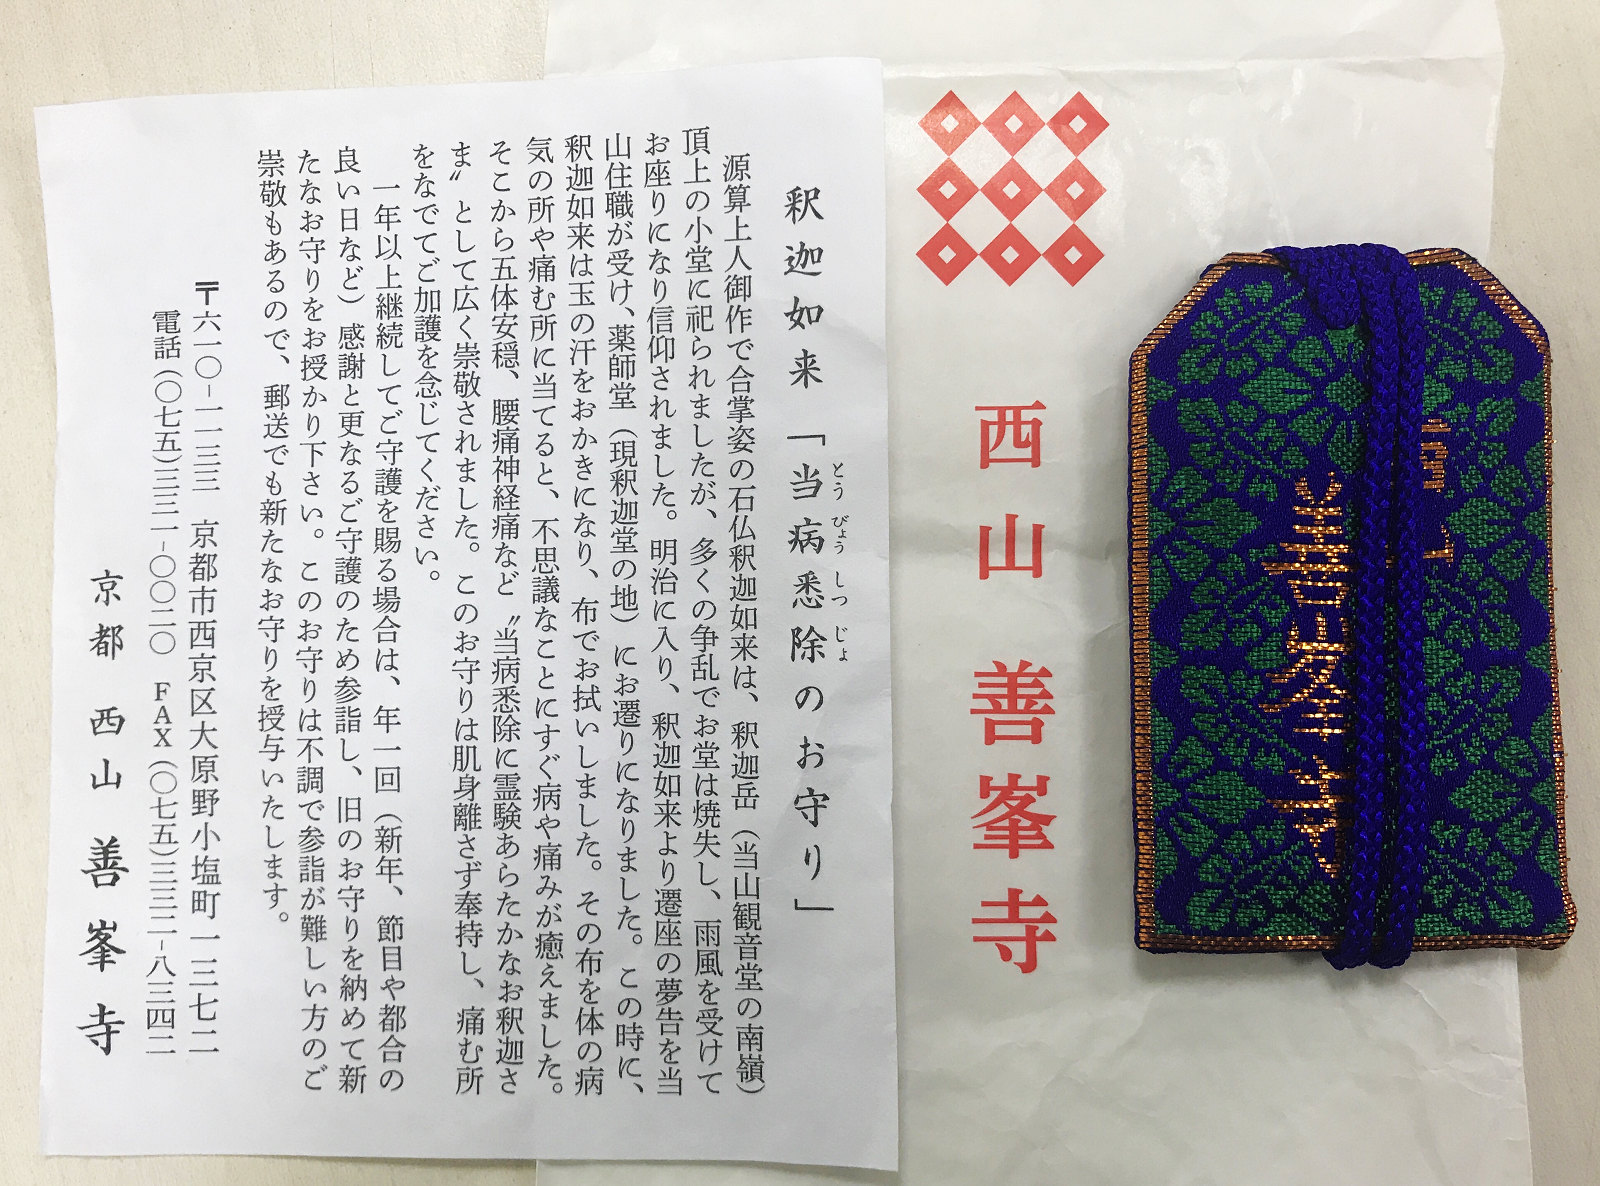 釈迦如来「当病悉除のお守り」
とうびょうしつじょ
源算上人御作で合掌姿の石仏釈迦如来は、釈迦岳（当山観音堂の南嶺）
頂上の小堂に祀られましたが、多くの争乱でお堂は焼失し、雨風を受けて
お座りになり信仰されました。明治に入り、釈迦如来より遷座の夢告を当
山住職が受け、薬師堂（現釈迦堂の地）にお遷りになりました。この時に、
釈迦如来は玉の汗をおかきになり、布でお拭いしました。その布を体の病
気の所や痛む所に当てると、不思議なことにすぐ病や痛みが癒えました。
そこから五体安穏、腰痛神経痛など〝当病悉除に霊験あらたかなお釈迦さ
ま〟として広く崇敬されました。このお守りは肌身離さず奉持し、痛む所
をなでてご加護を念じてください。
一年以上継続してご守護を賜る場合は、年一回（新年、節目や都合の
良い日など）感謝と更なるご守護のため参詣し、旧のお守りを納めて新
たなお守りをお授かり下さい。このお守りは不調で参詣が難しい方のご
崇敬もあるので、郵送でも新たなお守りを授与いたします。
〒六一〇-一一三三 京都市西京区大原野小塩町一三七二
電話（〇七五）三三一-〇〇二〇 FAX（〇七五）三三二-八三四二
京都 西山 善峯寺
西山 善峯寺
善峯寺